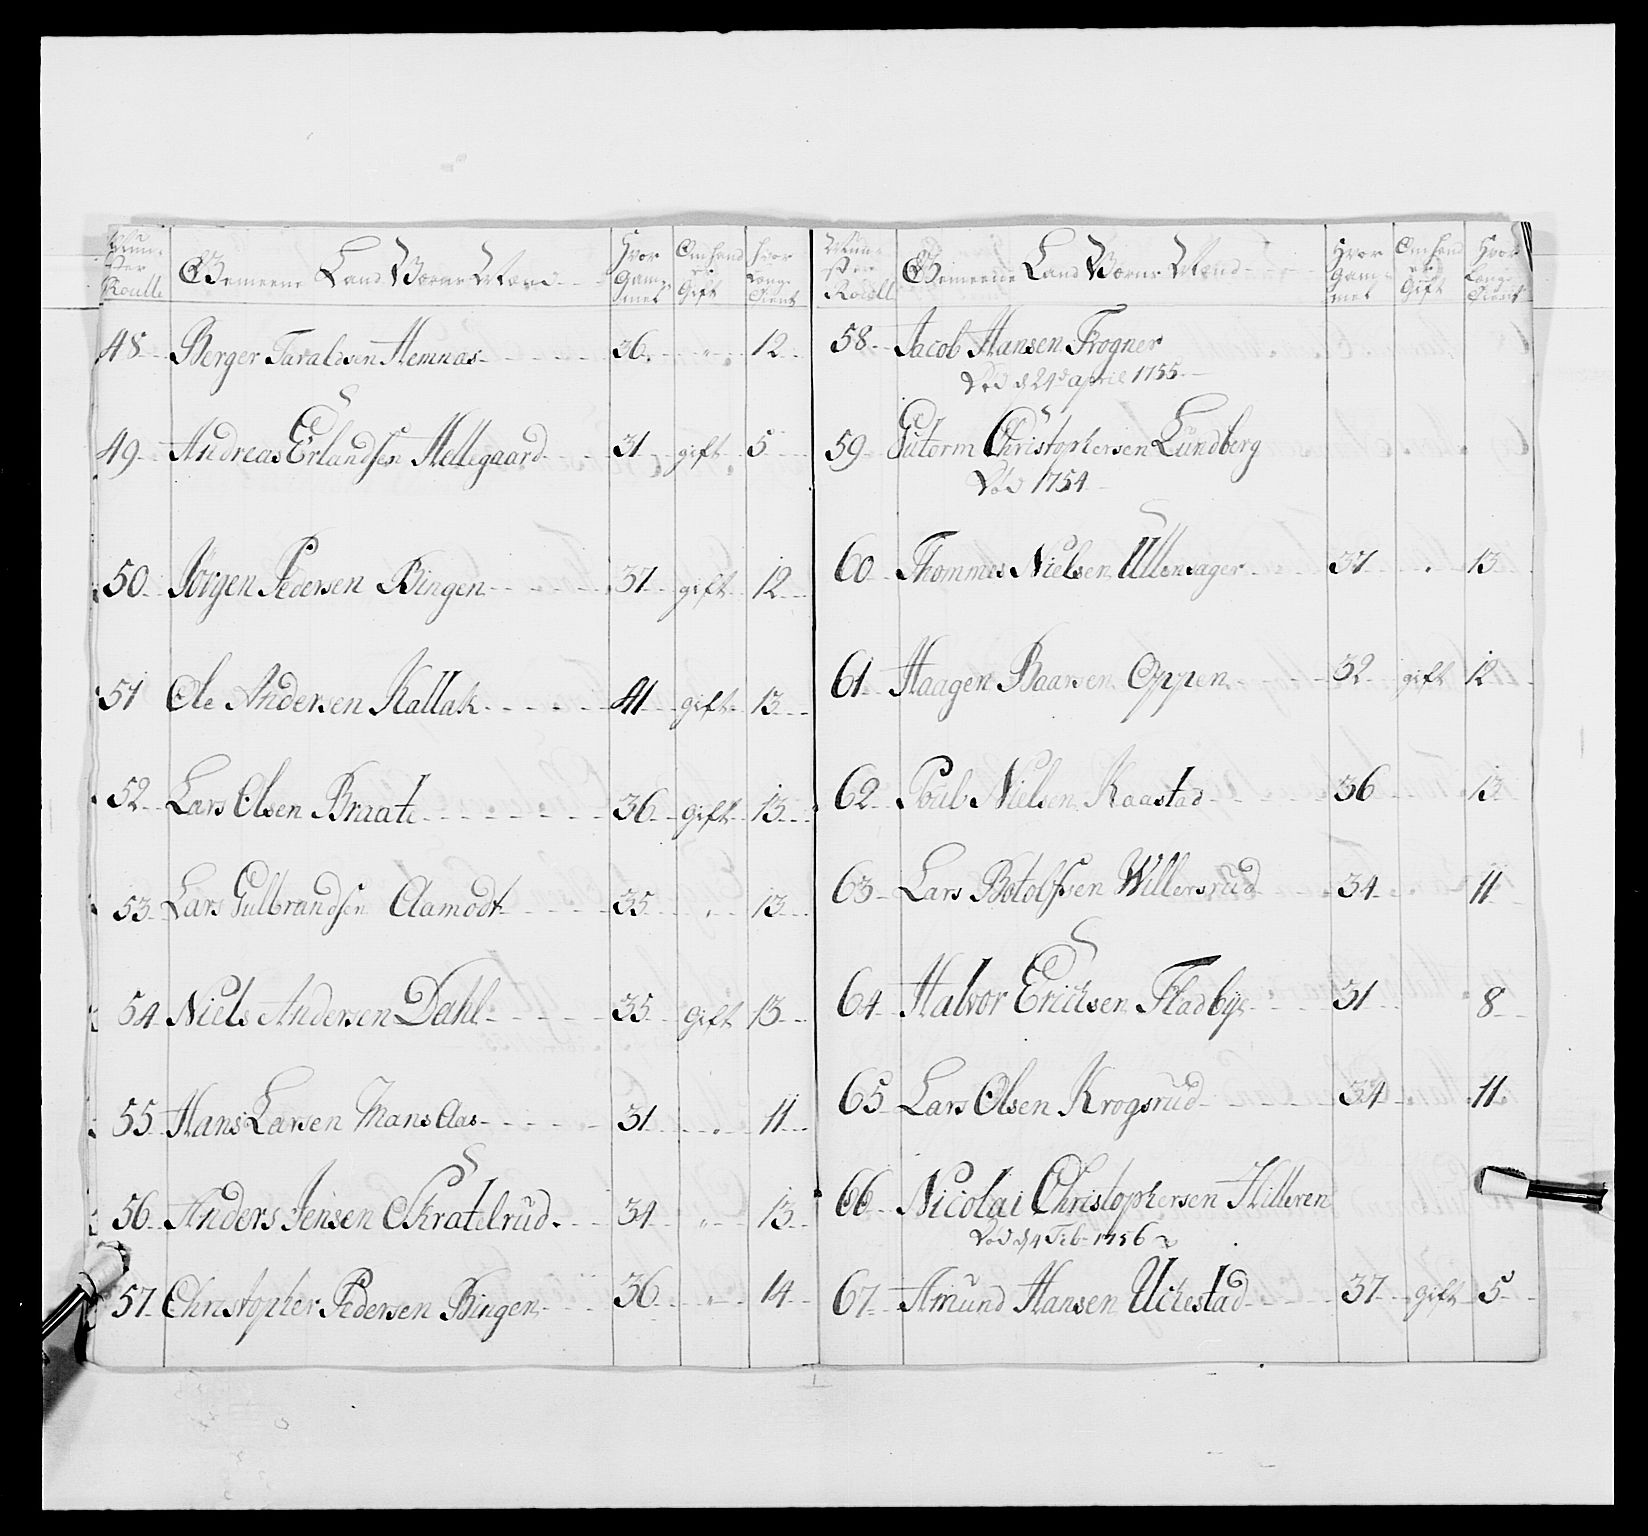 Mun-
ster
Roulle
Gemeene Land Værns Mænd
Hvor
Gam-
mel
Om hand
er
Gift
Hvor
Long
Tient
48 Berger Taraldsen Hemnæs 36. " 12
49 Andreas Erlandsen Hellegaard 31 gift 5
50 Jörgen Pedersen Bingen 37 gift 12
51 Ole Andersen Kallak 41 gift 13
52 Lars Olsen Braate 36 gift 13
53 Lars Gulbrandsen Aamodt 35 " 13
54 Niels Andersen Dahl 35 gift 13
55 Hans Larsen Mans Aas 31 " 11
56 Anders Jensen Skratelrud 34 " 13
57 Christopher Pedersen Bingen 36 " 14
Mun-
ster
Roull
Gemeene Land Værns Mænd
Hvor
Gam-
mel
Om hand
er
Gift
Hvor
Long
Tient
58 Jacob Hansen Frogner
Död d 24de april 1755
59 Gutorm Christophersen Lundberg
Död 1754
60 Thommes Nielsen Ullensager 37 " 13
61 Haagen Baarsen Oppen 32 gift 12
62 Poul Nielsen Kaastad 36 13
63 Lars Botolfsen Willersrud 34 11
64 Halvor Ericksen Fladbye 31 8
65 Lars Olsen Krogsrud 34 11
66 Nicolai Christophersen Hilleren
Död d 4 Feb 1756
67 Amund Hansen Uckestad 37 gift 5